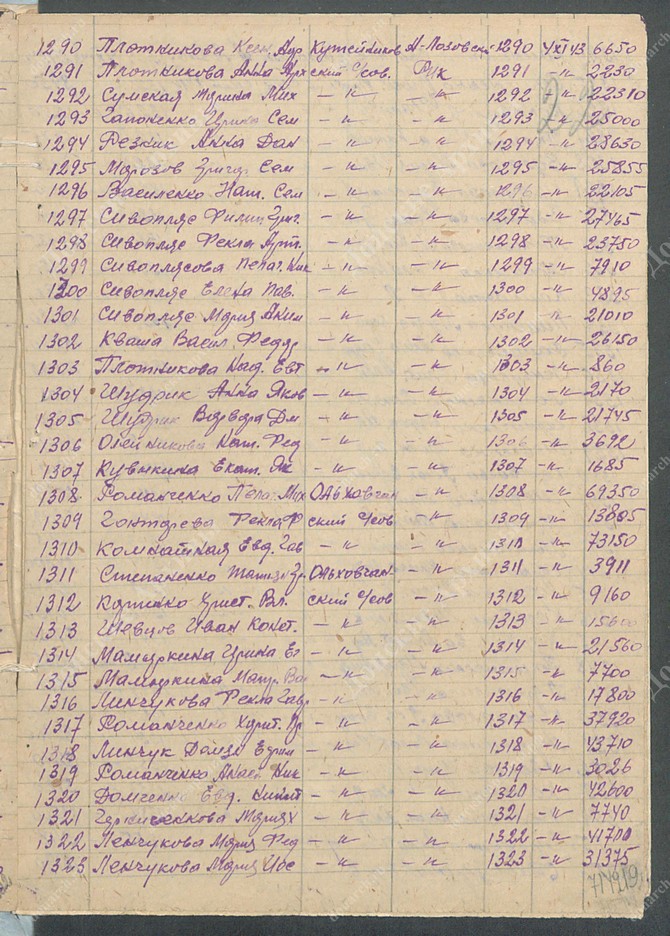 1290 Плотникова Ксен. Кутейников А-Лозовск 1290 4 XI 43 6650
1291 Плотникова Анна ский с/сов. Рик 1291 -"- 2230
1292 Сумская Марина Мих -"- -"- 1292 -"- 22310
1293 Гапоненко Ирина Сем -"- -"- 1293 -"- 25000
1294 Резник Анна Дан -"- -"- 1294 -"- 28630
1295 Морозов Григ. Сем -"- -"- 1295 -"- 25855
1296 Василенко Нат. Сем -"- -"- 1296 -"- 22105
1297 Сивопляс Филип Григ. -"- -"- 1297 -"- 27465
1298 Сивопляс Фекла Арт. -"- -"- 1298 -"- 23750
1299 Сивоплясова Пелаг. Ник -"- -"- 1299 -"- 7910
1300 Сивопляс Елена Пав. -"- -"- 1300 -"- 4895
1301 Сивопляс Мария Аким -"- -"- 1301 -"- 21010
1302 Кваша Васил. Федор -"- -"- 1302 -"- 26150
1303 Плотникова Над. Евт -"- -"- 1303 -"- 860
1304 Шудрик Анна Яков -"- -"- 1304 -"- 2170
1305 Шудрик Дм -"- -"- 1305 -"- 21745
1306 Олейникова Нат. Фед -"- -"- 1306 -"- 3692
1307 Кувикина Екат. Як -"- -"- 1307 -"- 1685
1308 Романченко Пелаг. Мих Ольховчан -"- 1308 -"- 69350
1309 Гонтарева Фекла Ф ский с/сов -"- 1309 -"- 13805
1310 Комнатная Евд. Гав -"- -"- 1310 -"- 73150
1311 Степаненко Ольховчан -"- 1311 -"- 3911
1312 Христ. Вл. ский с/сов -"- 1312 -"- 9160
1313 Шевцов Иван Конст. -"- -"- 1313 -"- 15600
1314 Ирина Ег -"- -"- 1314 -"- 21560
1315 -"- -"- 1315 -"- 7700
1316 Линчукова Фекла Гавр -"- -"- 1316 -"- 17800
1317 Романченко Харит. -"- -"- 1317 -"- 37920
1318 Линчук Ефим -"- -"- 1318 -"- 43710
1319 Романченко Анаст. Ник -"- -"- 1319 -"- 3026
1320 Евд. -"- -"- 1320 -"- 42600
1321 Мария -"- -"- 1321 -"- 7740
1322 Ленчукова Мария Фед -"- -"- 1322 -"- 41710
1323 Ленчукова Мария -"- -"- 1323 -"- 31375